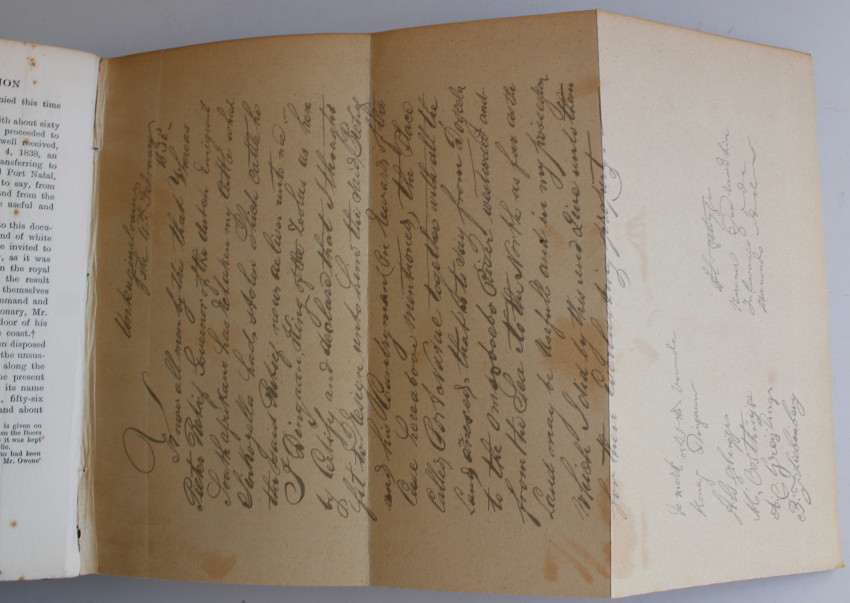 ION
nied this time
ith about sixty
proceeded to
well received,
4, 1838, an
ransferring to
Port Natal,
to say, from
and from the
e useful and
o this docu-
nd of white
e invited to
, as it was
n the royal
the result
themselves
mmand and
onary, Mr.
door of his
coast.†
n disposed
the unsus-
along the
he present
its name
, fifty-six
and about
is given on
om the Boers
it was kept
ho had been
Mr. Owens'
the 4th February
Know all men by this that Whereas
Pieter Retief Governor of the dutch Emigrants
South afrikans has Retaken my Cattle which
Sinkonyella had stolen which Cattle he
the said Retief now deliver unto me
I Dingaan, King of the Zoolas as here
by Certify and declare that I thought
fit to Resign unto him the said Retief
and his Countrymen on Reward of the
Case hereabove mentioned the Place
Called Port Natal together with all the
Land annexed, that is to say from Dogela
to the Omsoboebo River westward and
from the Sea to the North as far as the
Land may be Usefull and in my possession
Which I did by this and Give unto them
for their Everlasting property.
De merk van de
King Dingaan
M Oosthuyse
A C Greyling
B J Liebenberg